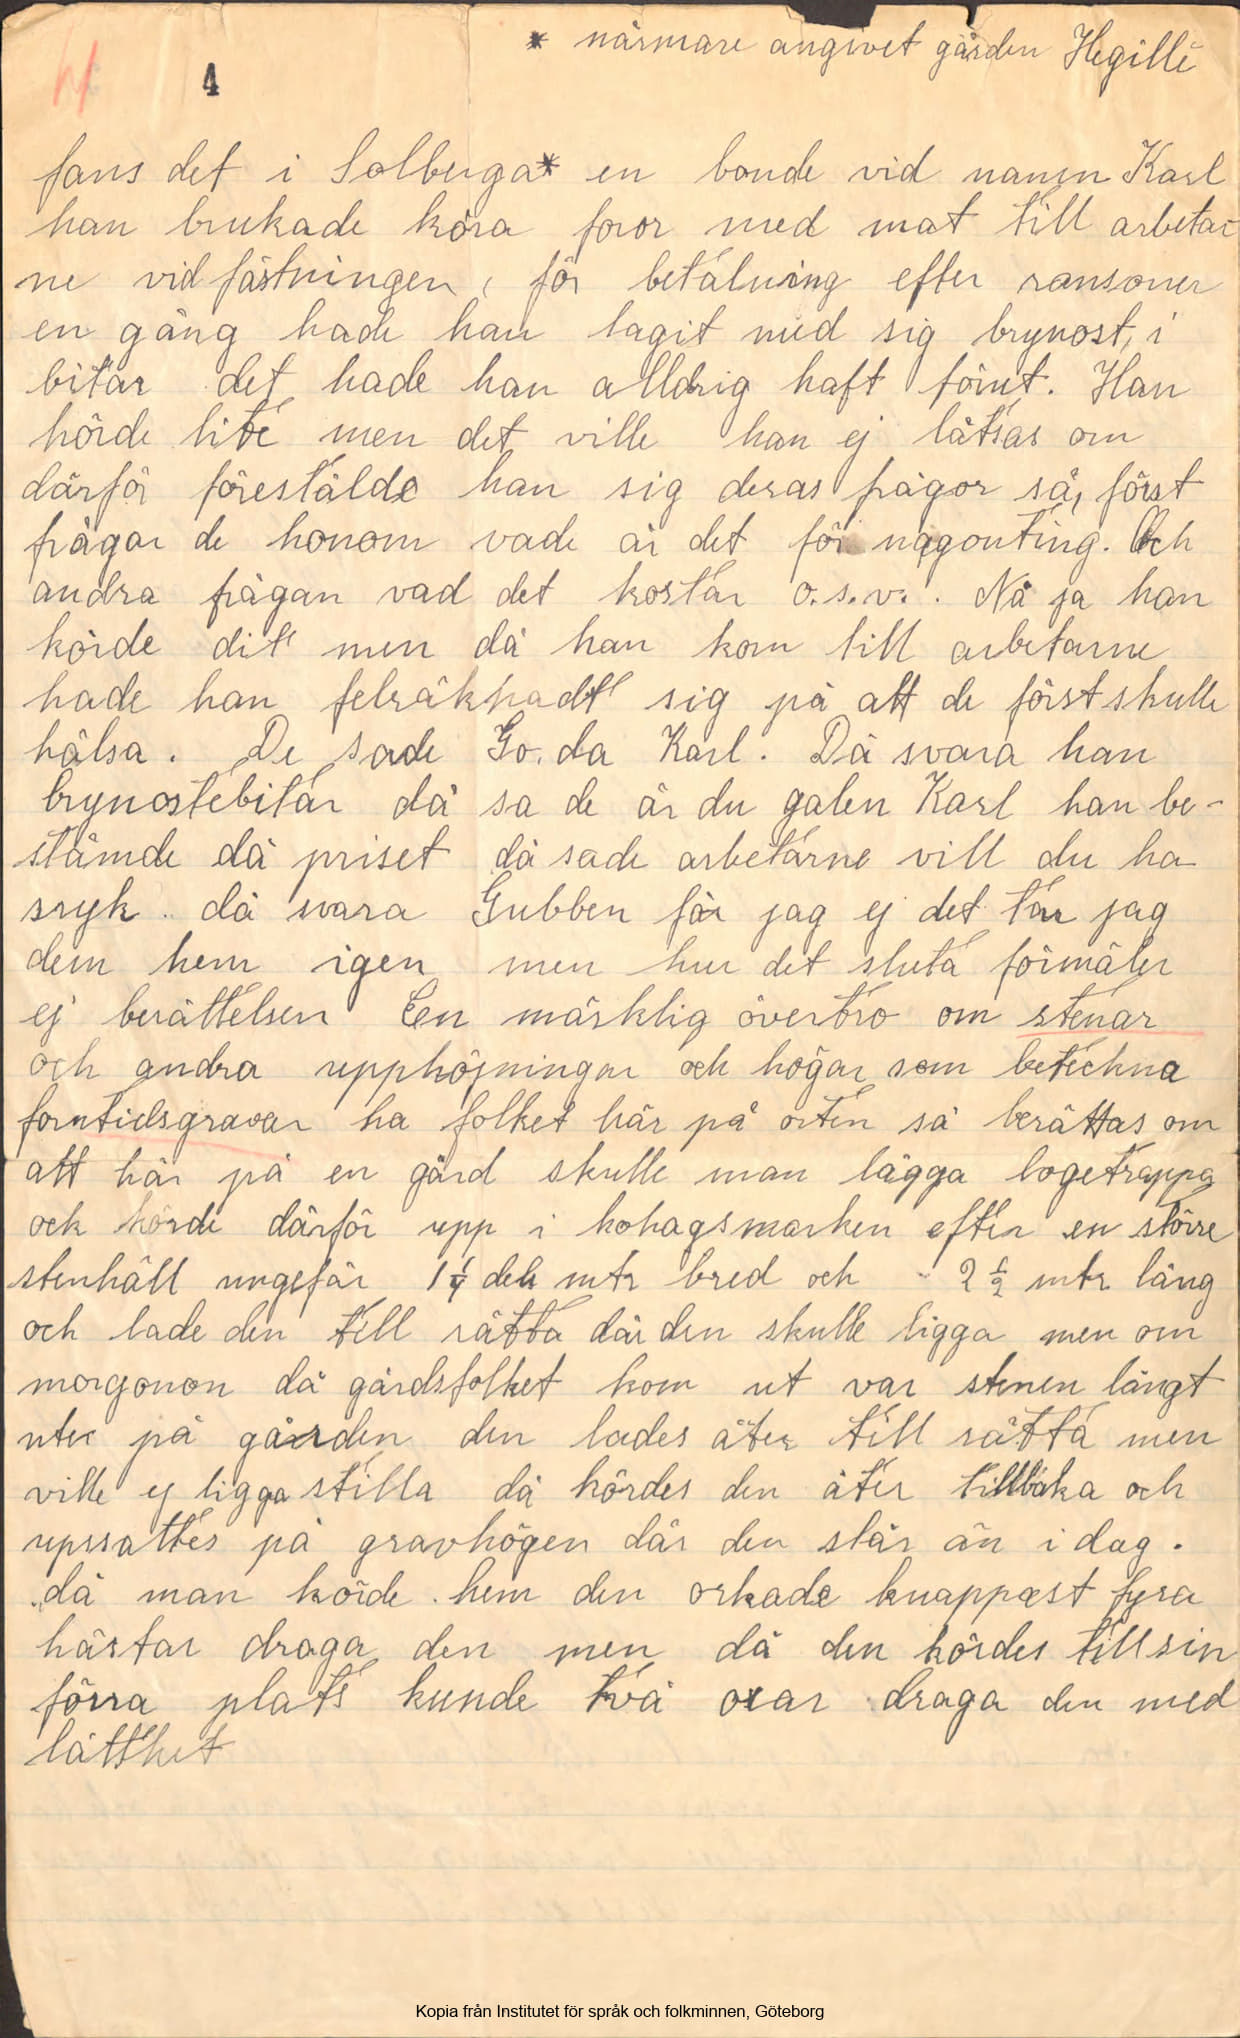 * närmare angivet gården Hegille
4
fans det i Solberga* en bonde vid namn Karl
han brukade köra foror med mat till arbetar
ne vid fästningen, för betalning efter ransoner
en gång hade han tagit med sig brynost, i
bitar det hade han alldrig haft förut. Han
hörde lite men det ville han ej låtsas om
därför förestälde han sig deras frågor så, först
frågar de honom vade är det för någonting. Och
andra frågan vad det kostar o.s.v. Nå ja han
körde dit men då han kom till arbetarne
hade han felräknadt sig på att de först skulle
hälsa. De sade Go. da Karl. Då svara han
brynostebitar då sa de är du galen Karl han be-
stämde då priset då sade arbetarne vill du ha
stryk då svara Gubben får jag ej det tar jag
dem hem igen men hur det sluta förmäler
ej berättelsen En märklig övertro om stenar
och andra upphöjningar och högar som beteckna
forntidsgravar ha folket här på orten så berättas om
att här på en gård skulle man lägga logetrappa
ock körde därför upp i kohagsmarken efter en större
stenhäll ungefär 1¼ deh mtr bred och 2½ mtr lång
och lade den till rätta där den skulle ligga men om
morgonon då gårdsfolket kom ut var stenen långt
ute på gården den lades åter till rätta men
ville ej ligga stilla då kördes den åter tillbaka och
upssattes på gravhögen där den står än i dag.
då man körde hem den orkade knappast fyra
hästar draga den men då den kördes till sin
förra plats kunde två oxar draga den med
lätthet
Kopia från Institutet för språk och folkminnen, Göteborg